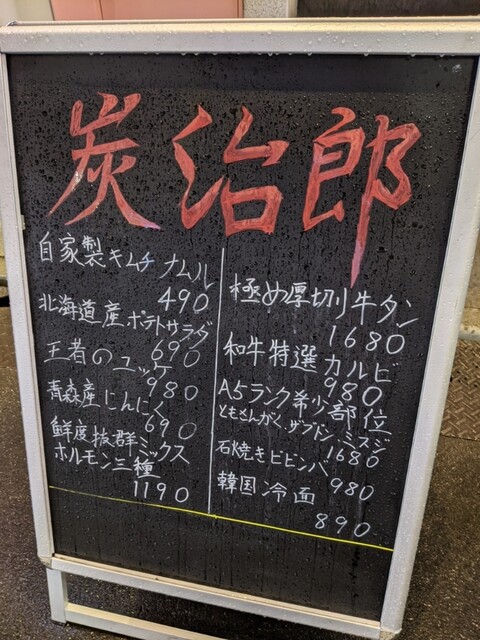 炭治郎
自家製キムチ ナムル
490
北海道産ポテトサラダ
690
王者のユッケ
980
青森産にんにく
690
鮮度抜群ミックス
ホルモン三種
1190
極め厚切り牛タン
1680
和牛特選カルビ
980
A5ランク希少部位
ともさんかく、ザブトン、ミスジ
1680
石焼きビビンバ
980
韓国冷面
890